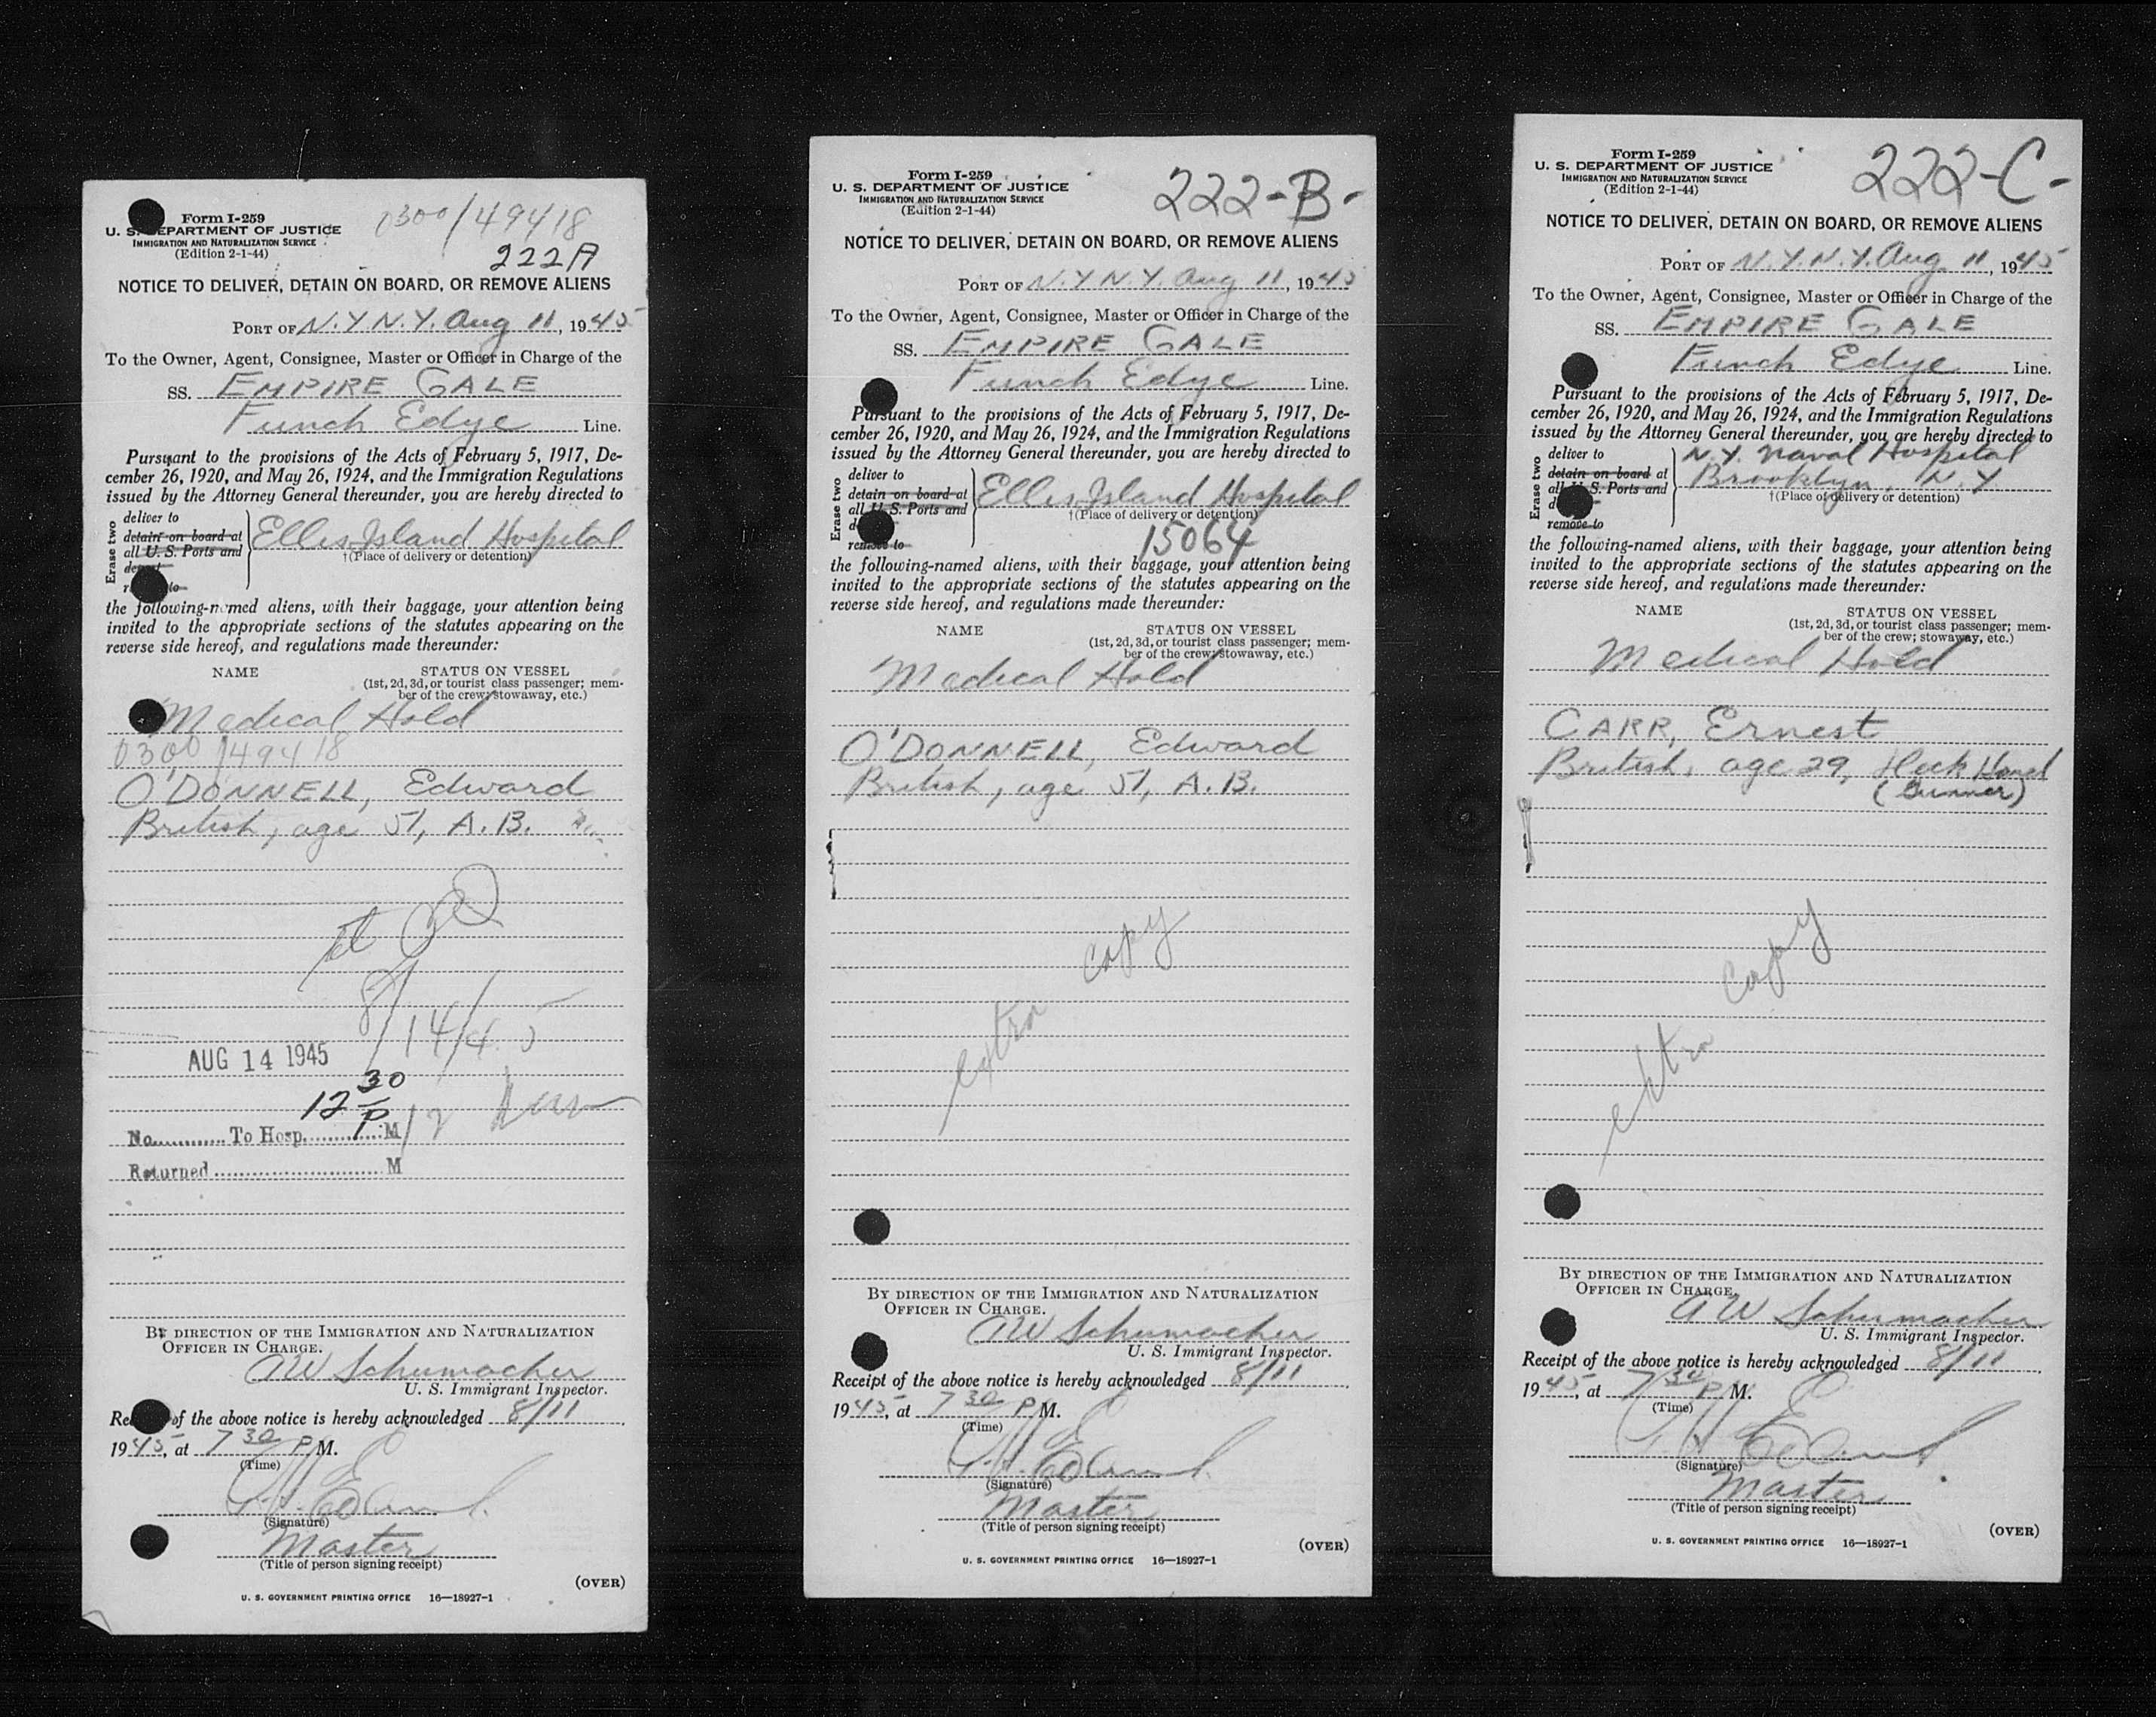 Form I-259
U. S. DEPARTMENT OF JUSTICE
IMMIGRATION AND NATURALIZATION SERVICE
(Edition 2-1-44)
0300/49418
222A
NOTICE TO DELIVER, DETAIN ON BOARD, OR REMOVE ALIENS
PORT OF N.Y. N.Y. Aug 11, 1945
To the Owner, Agent, Consignee, Master or Officer in Charge of the
SS. EMPIRE GALE
Funch Edye Line.
Pursuant to the provisions of the Acts of February 5, 1917, De-
cember 26, 1920, and May 26, 1924, and the Immigration Regulations
issued by the Attorney General thereunder, you are hereby directed to
Erase two
deliver to
detain on board at
all U. S. Ports and
Ellis Island Hospital
†(Place of delivery or detention)
the following-named aliens, with their baggage, your attention being
invited to the appropriate sections of the statutes appearing on the
reverse side hereof, and regulations made thereunder:
NAME STATUS ON VESSEL
(1st, 2d, 3d, or tourist class passenger; mem-
ber of the crew; stowaway, etc.)
Medical Hold
0300/49418
O'DONNELL, Edward
British, age 51, A.B.
8/14/45
AUG 14 1945
12 30 P
No. To Hosp. M
Returned M
BY DIRECTION OF THE IMMIGRATION AND NATURALIZATION
OFFICER IN CHARGE.
AW Schumacher
U. S. Immigrant Inspector.
of the above notice is hereby acknowledged 8/11
1945, at 7 30 P M.
(Time)
(Signature)
Master
(Title of person signing receipt)
(OVER)
U. S. GOVERNMENT PRINTING OFFICE 16—18927-1
Form I-259
U. S. DEPARTMENT OF JUSTICE
IMMIGRATION AND NATURALIZATION SERVICE
(Edition 2-1-44)
222-B-
NOTICE TO DELIVER, DETAIN ON BOARD, OR REMOVE ALIENS
PORT OF N.Y. N.Y. Aug 11, 1945
To the Owner, Agent, Consignee, Master or Officer in Charge of the
SS. EMPIRE GALE
Funch Edye Line.
Pursuant to the provisions of the Acts of February 5, 1917, De-
cember 26, 1920, and May 26, 1924, and the Immigration Regulations
issued by the Attorney General thereunder, you are hereby directed to
Erase two
deliver to
detain on board at
all U. S. Ports and
remove to
Ellis Island Hospital
†(Place of delivery or detention)
15064
the following-named aliens, with their baggage, your attention being
invited to the appropriate sections of the statutes appearing on the
reverse side hereof, and regulations made thereunder:
NAME STATUS ON VESSEL
(1st, 2d, 3d, or tourist class passenger; mem-
ber of the crew; stowaway, etc.)
Medical Hold
O'DONNELL, Edward
British, age 51, A.B.
extra copy
BY DIRECTION OF THE IMMIGRATION AND NATURALIZATION
OFFICER IN CHARGE.
AW Schumacher
U. S. Immigrant Inspector.
Receipt of the above notice is hereby acknowledged 8/11,
1945, at 7 30 P M.
(Time)
(Signature)
Master
(Title of person signing receipt)
(OVER)
U. S. GOVERNMENT PRINTING OFFICE 16—18927-1
Form I-259
U. S. DEPARTMENT OF JUSTICE
IMMIGRATION AND NATURALIZATION SERVICE
(Edition 2-1-44)
222-C-
NOTICE TO DELIVER, DETAIN ON BOARD, OR REMOVE ALIENS
PORT OF N.Y. N.Y. Aug 11, 1945
To the Owner, Agent, Consignee, Master or Officer in Charge of the
SS. EMPIRE GALE
Funch Edye Line.
Pursuant to the provisions of the Acts of February 5, 1917, De-
cember 26, 1920, and May 26, 1924, and the Immigration Regulations
issued by the Attorney General thereunder, you are hereby directed to
Erase two
deliver to
detain on board at
all U. S. Ports and
remove to
N.Y. Naval Hospital
Brooklyn, N.Y.
†(Place of delivery or detention)
the following-named aliens, with their baggage, your attention being
invited to the appropriate sections of the statutes appearing on the
reverse side hereof, and regulations made thereunder:
NAME STATUS ON VESSEL
(1st, 2d, 3d, or tourist class passenger; mem-
ber of the crew; stowaway, etc.)
Medical Hold
CARR, Ernest
British, age 29, Deck Hand
(Gunner)
extra copy
BY DIRECTION OF THE IMMIGRATION AND NATURALIZATION
OFFICER IN CHARGE.
AW Schumacher
U. S. Immigrant Inspector.
Receipt of the above notice is hereby acknowledged 8/11
1945, at 7 30 P M.
(Time)
(Signature)
Master
(Title of person signing receipt)
(OVER)
U. S. GOVERNMENT PRINTING OFFICE 16—18927-1